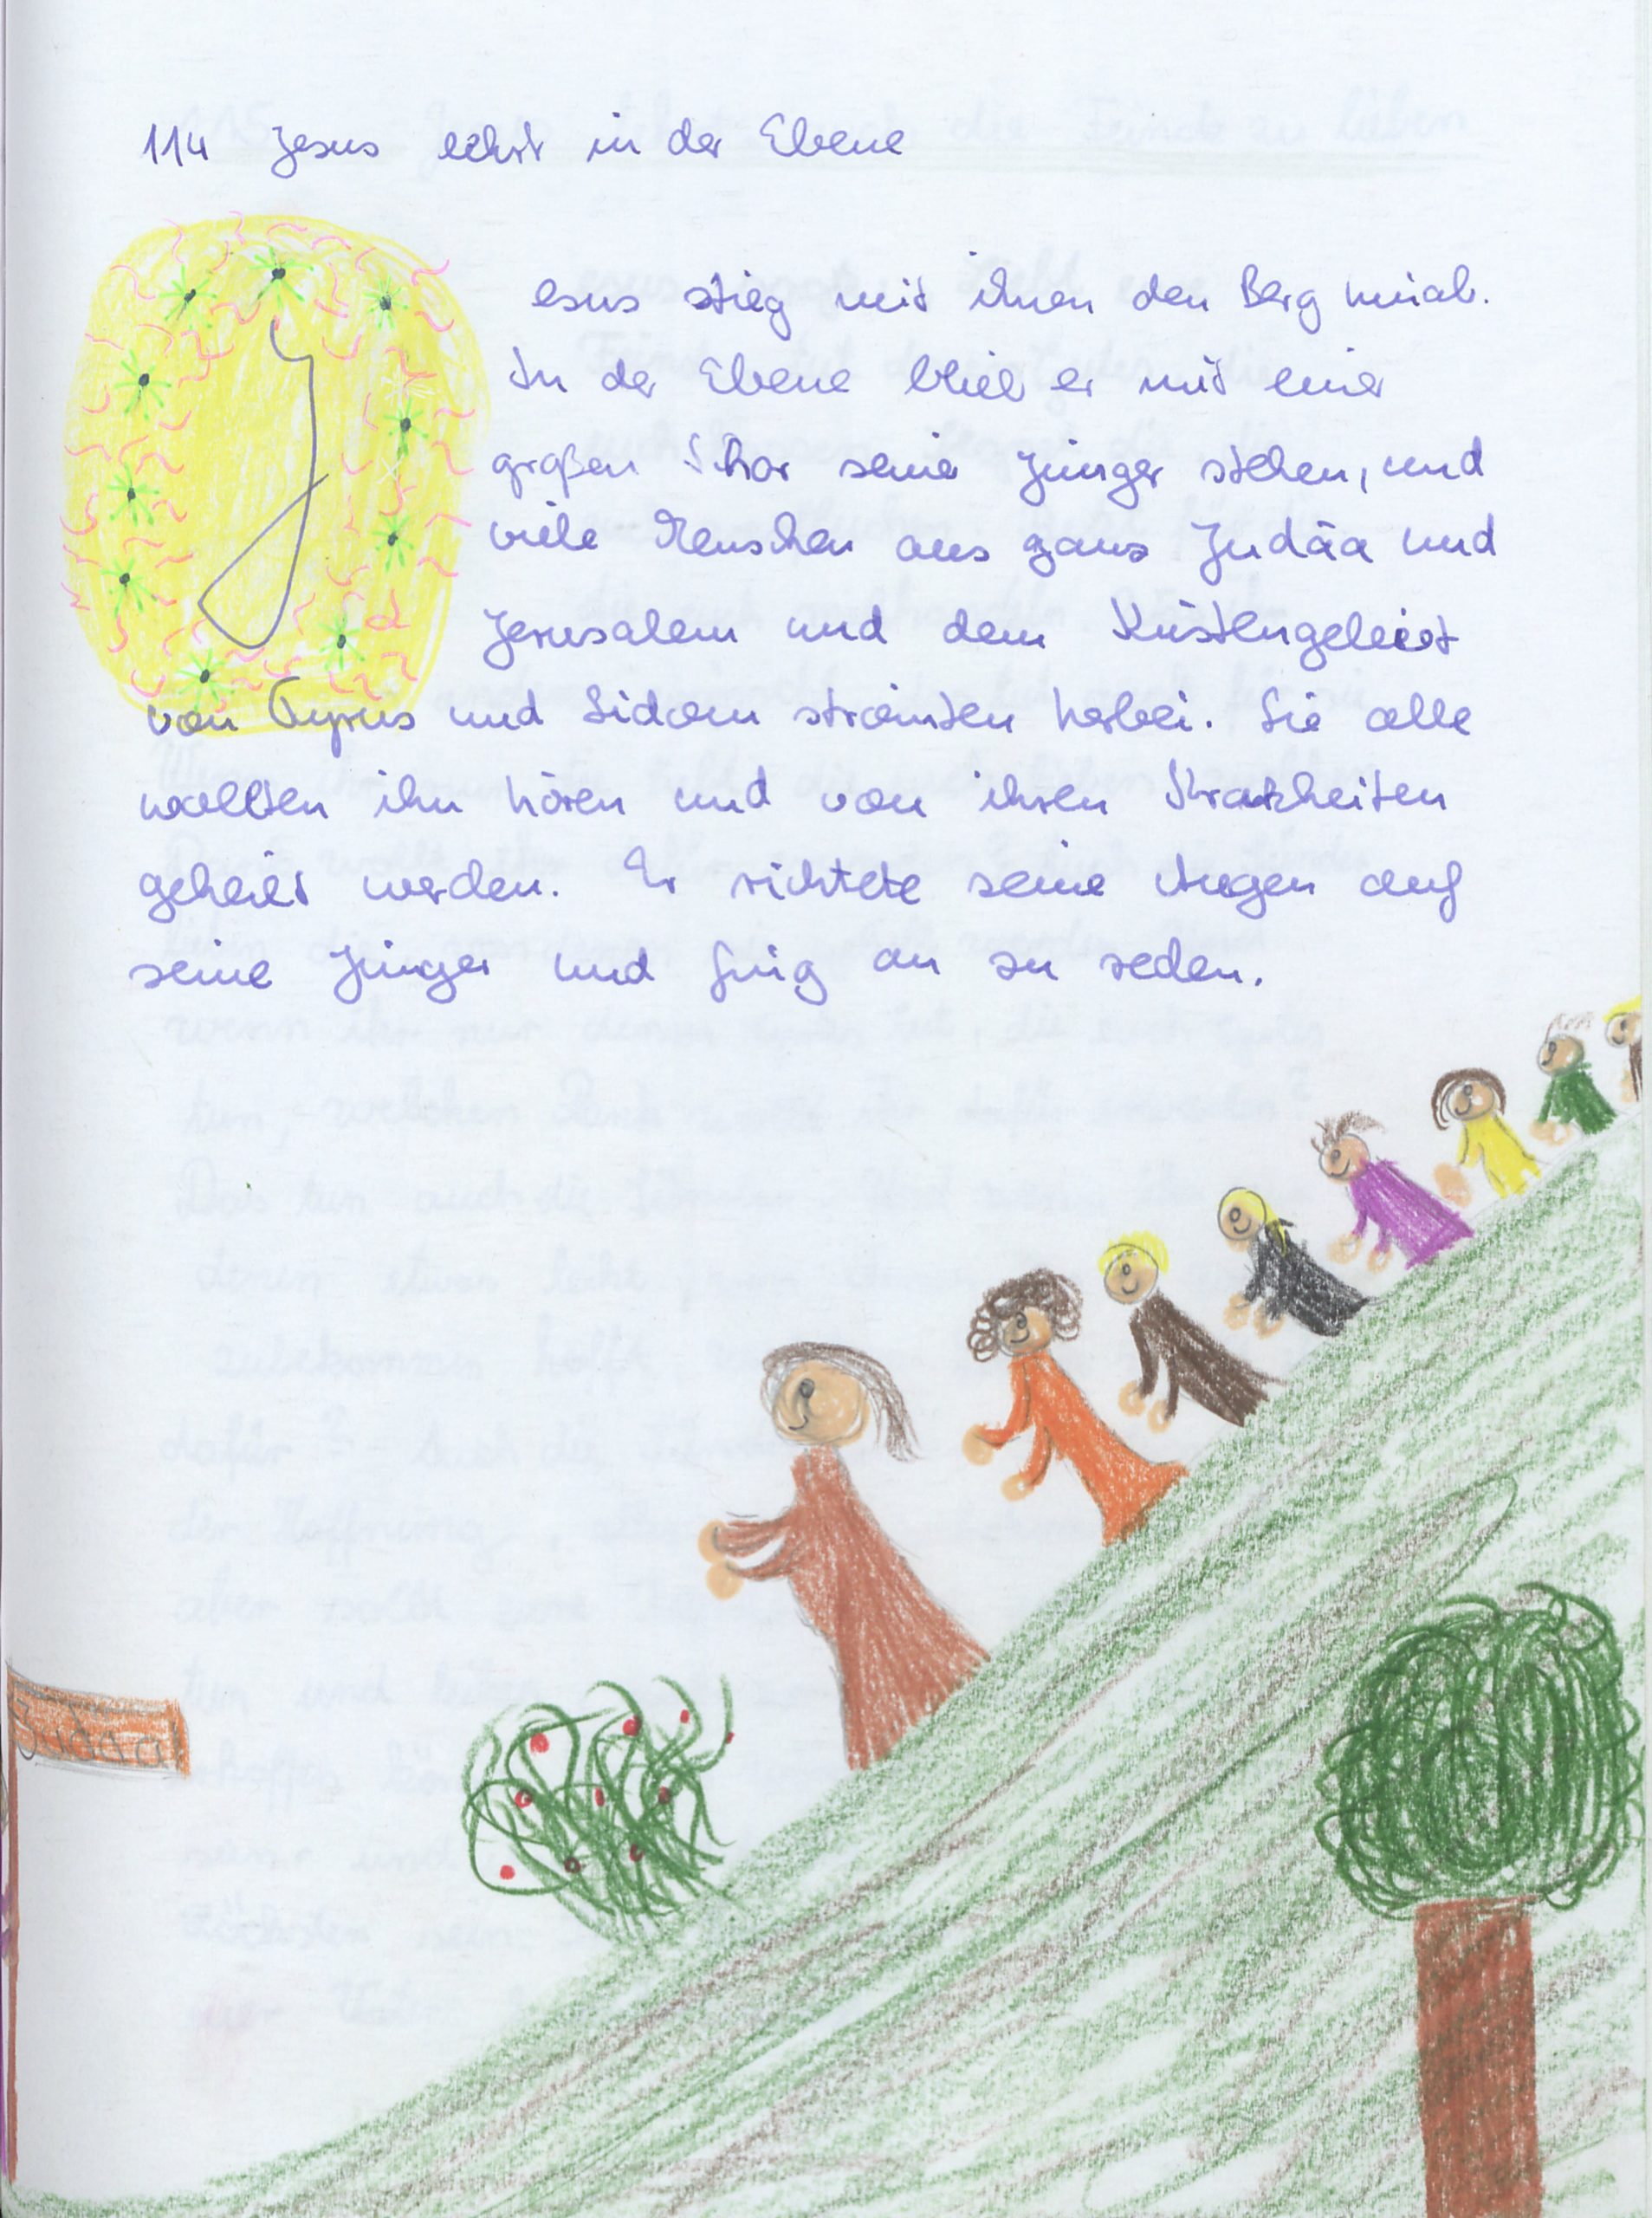 114 Jesus lehrt in der Ebene
Jesus stieg mit ihnen den Berg hinab.
In der Ebene blieb er mit einer
großen Schar seiner Jünger stehen, und
viele Menschen aus ganz Judäa und
Jerusalem und dem Küstengebiet
von Tyrus und Sidon strömten herbei. Sie alle
wollten ihn hören und von ihren Krankheiten
geheilt werden. Er richtete seine Augen auf
seine Jünger und fing an zu reden.
Judäa!